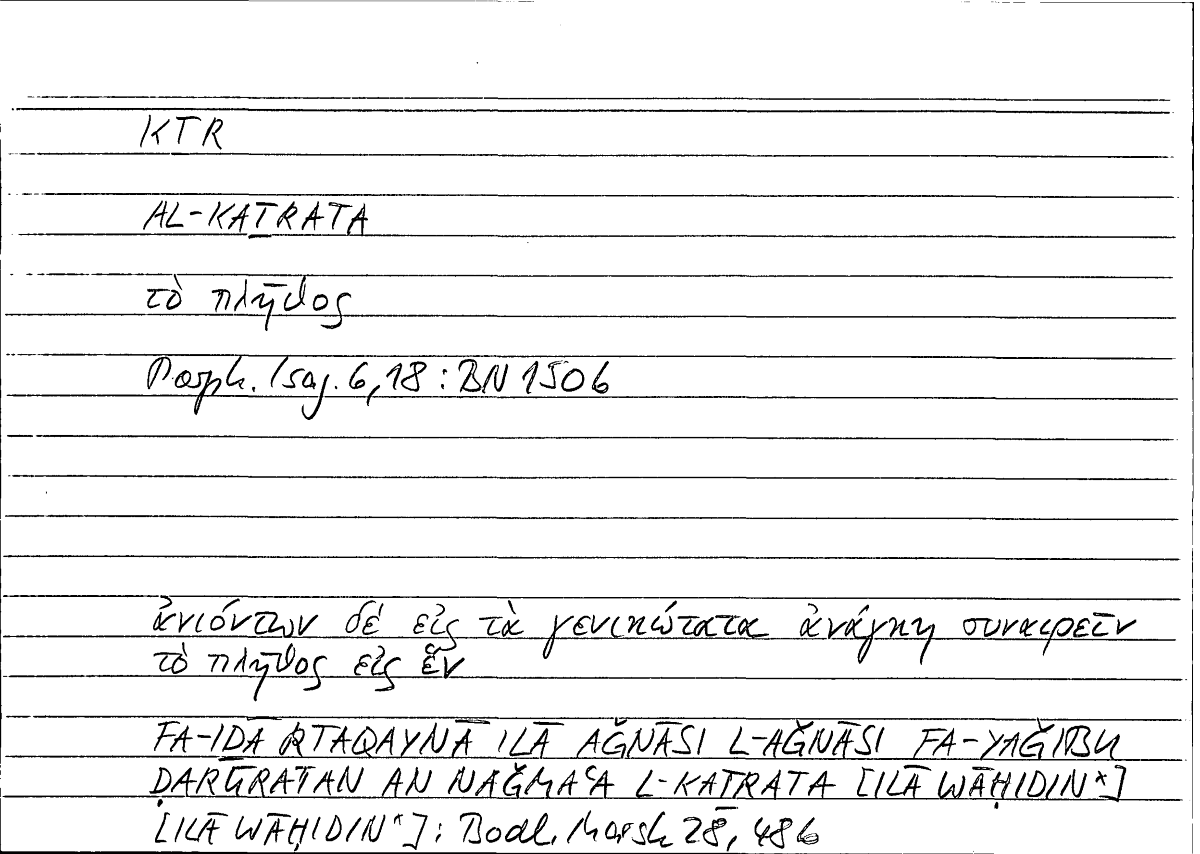 KTR
AL-KAṮRATA
τὸ πλῆθος
Porph. Isag. 6,18 : BN 1506
ἀνιόντων δέ εἰς τὰ γενικώτατα ἀνάγκη συναιρεῖν
τὸ πλῆθος εἰς ἕν
FA-IḎĀ RTAQAYNĀ ILĀ AǦNĀSI L-AǦNĀSI FA-YAǦIBU
ḌARŪRATAN AN NAǦMAʿA L-KAṮRATA [ILĀ WĀḤIDIN*]
[ILĀ WĀḤIDIN*] : Bodl. Marsh 28, 486